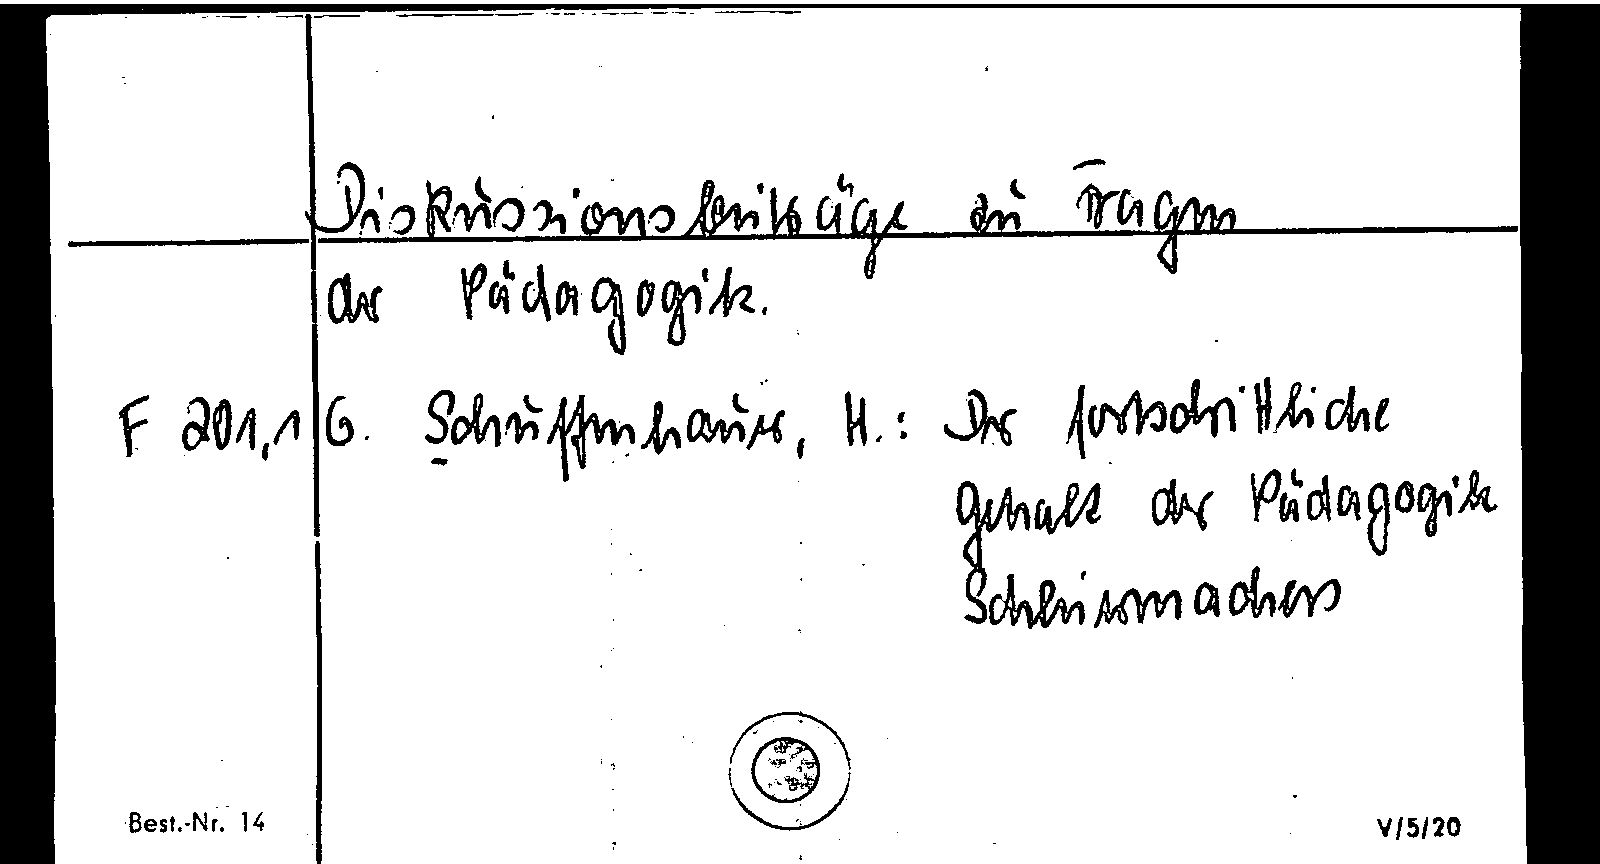 Diskussionsbeiträge zu Fragen
der Pädagogik.
F 201,1 6. Schuffenhauer, H.: Der fortschrittliche
Gehalt der Pädagogik
Schleiermachers
Best.-Nr. 14 V/5/20